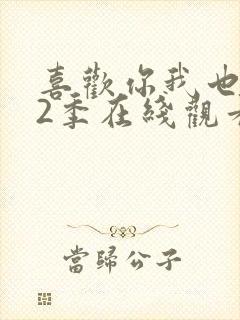 喜歡你我也
2季在綫觀
當歸公子